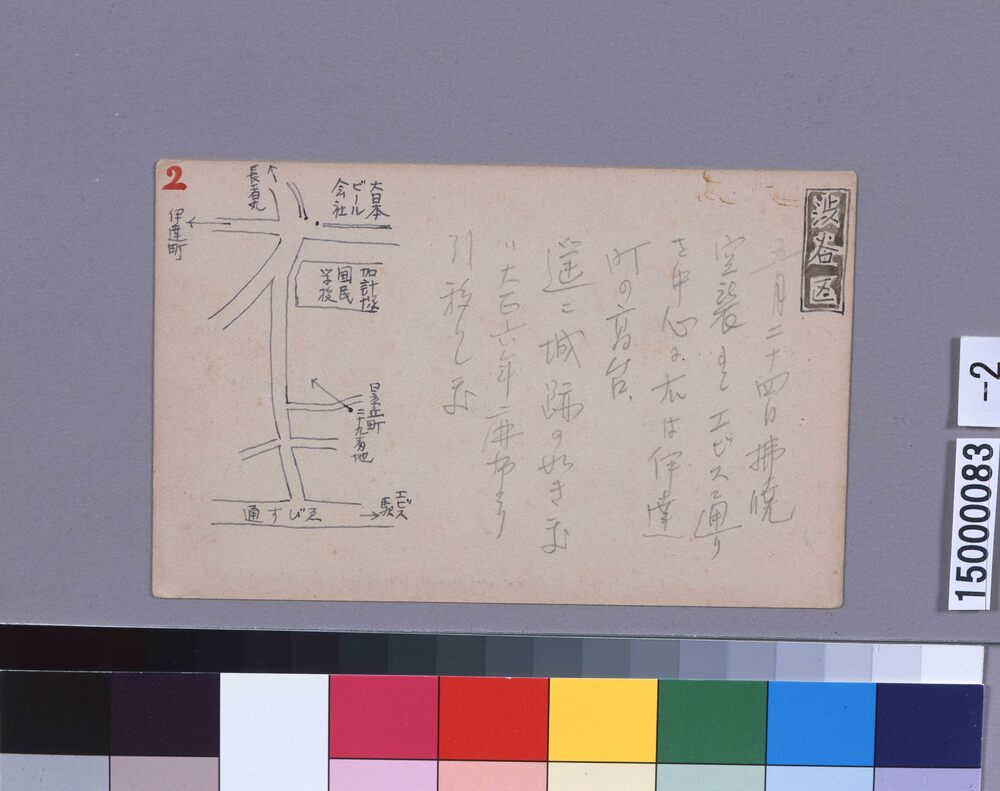 渋谷区
五月二十四日拂暁
空襲
エビス通り
を中心に左は伊達
町の高台
遥に城跡の如き
大正六年麻布より
引移りし
2
長者丸
伊達町
大日本
ビール
会社
加計塚
国民
学校
二十九番地
ゑびす通
エビス
駅
15000083
-2